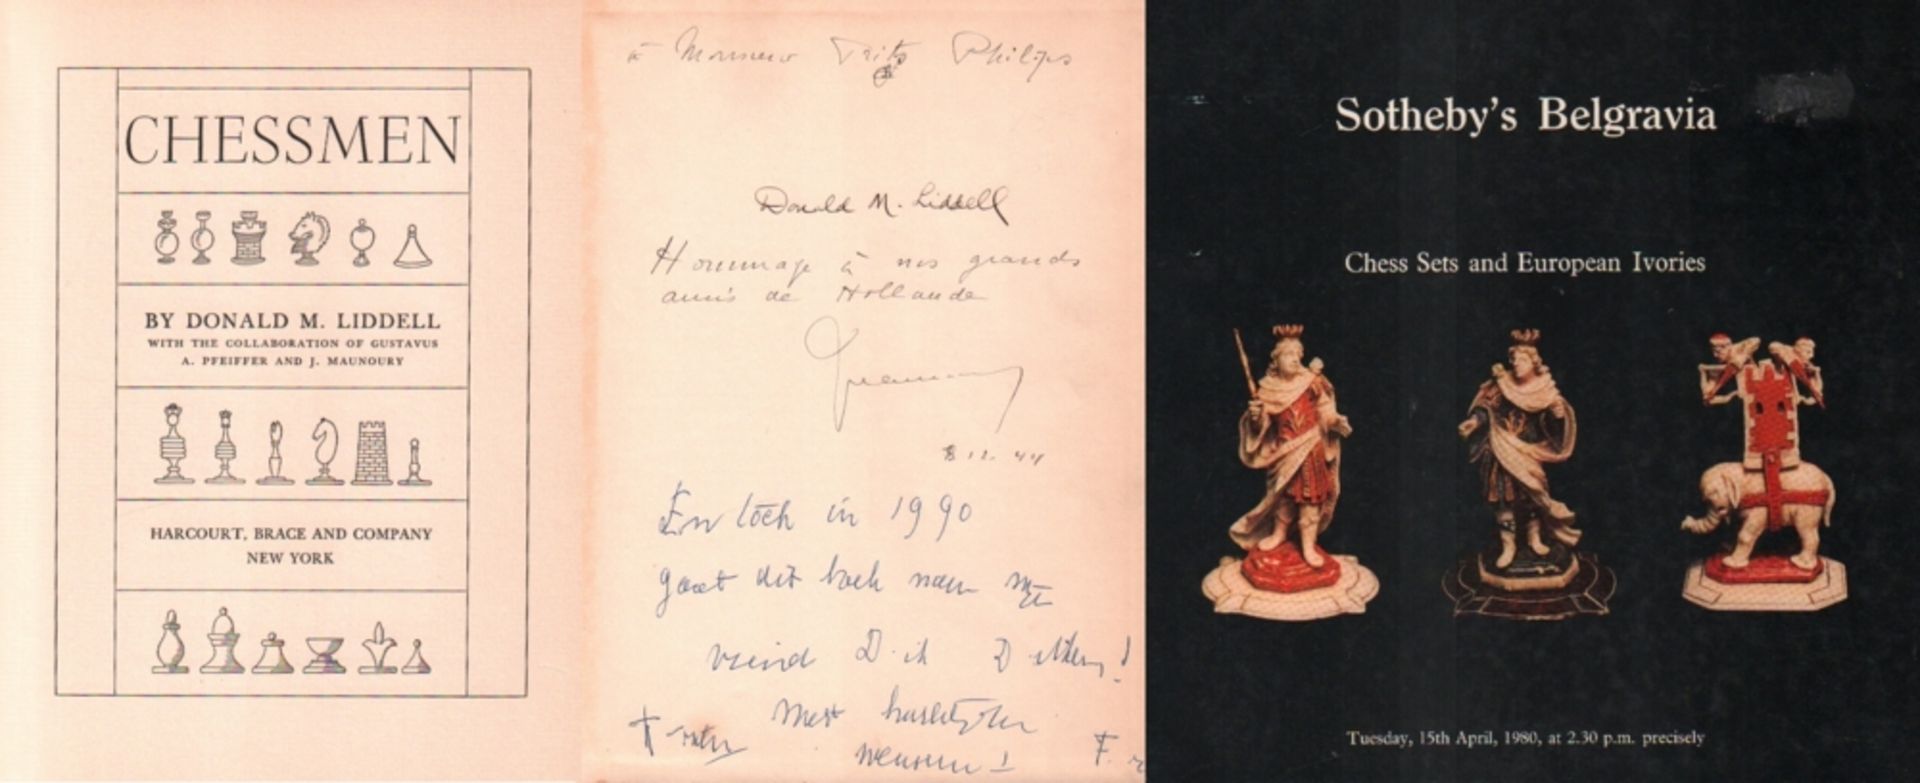 CHESSMEN
BY DONALD M. LIDDELL
WITH THE COLLABORATION OF GUSTAVUS
A. PFEIFFER AND J. MAUNOURY
HARCOURT, BRACE AND COMPANY
NEW YORK
à Monsieur Frits Philips
Donald M. Liddell
Hommage à nos grands
amis de Hollande
12. 44
En toch in 1990
gaat dit boek naar mijn
vriend Dik
Met hartelijke
wensen!
Sotheby's Belgravia
Chess Sets and European Ivories
Tuesday, 15th April, 1980, at 2.30 p.m. precisely